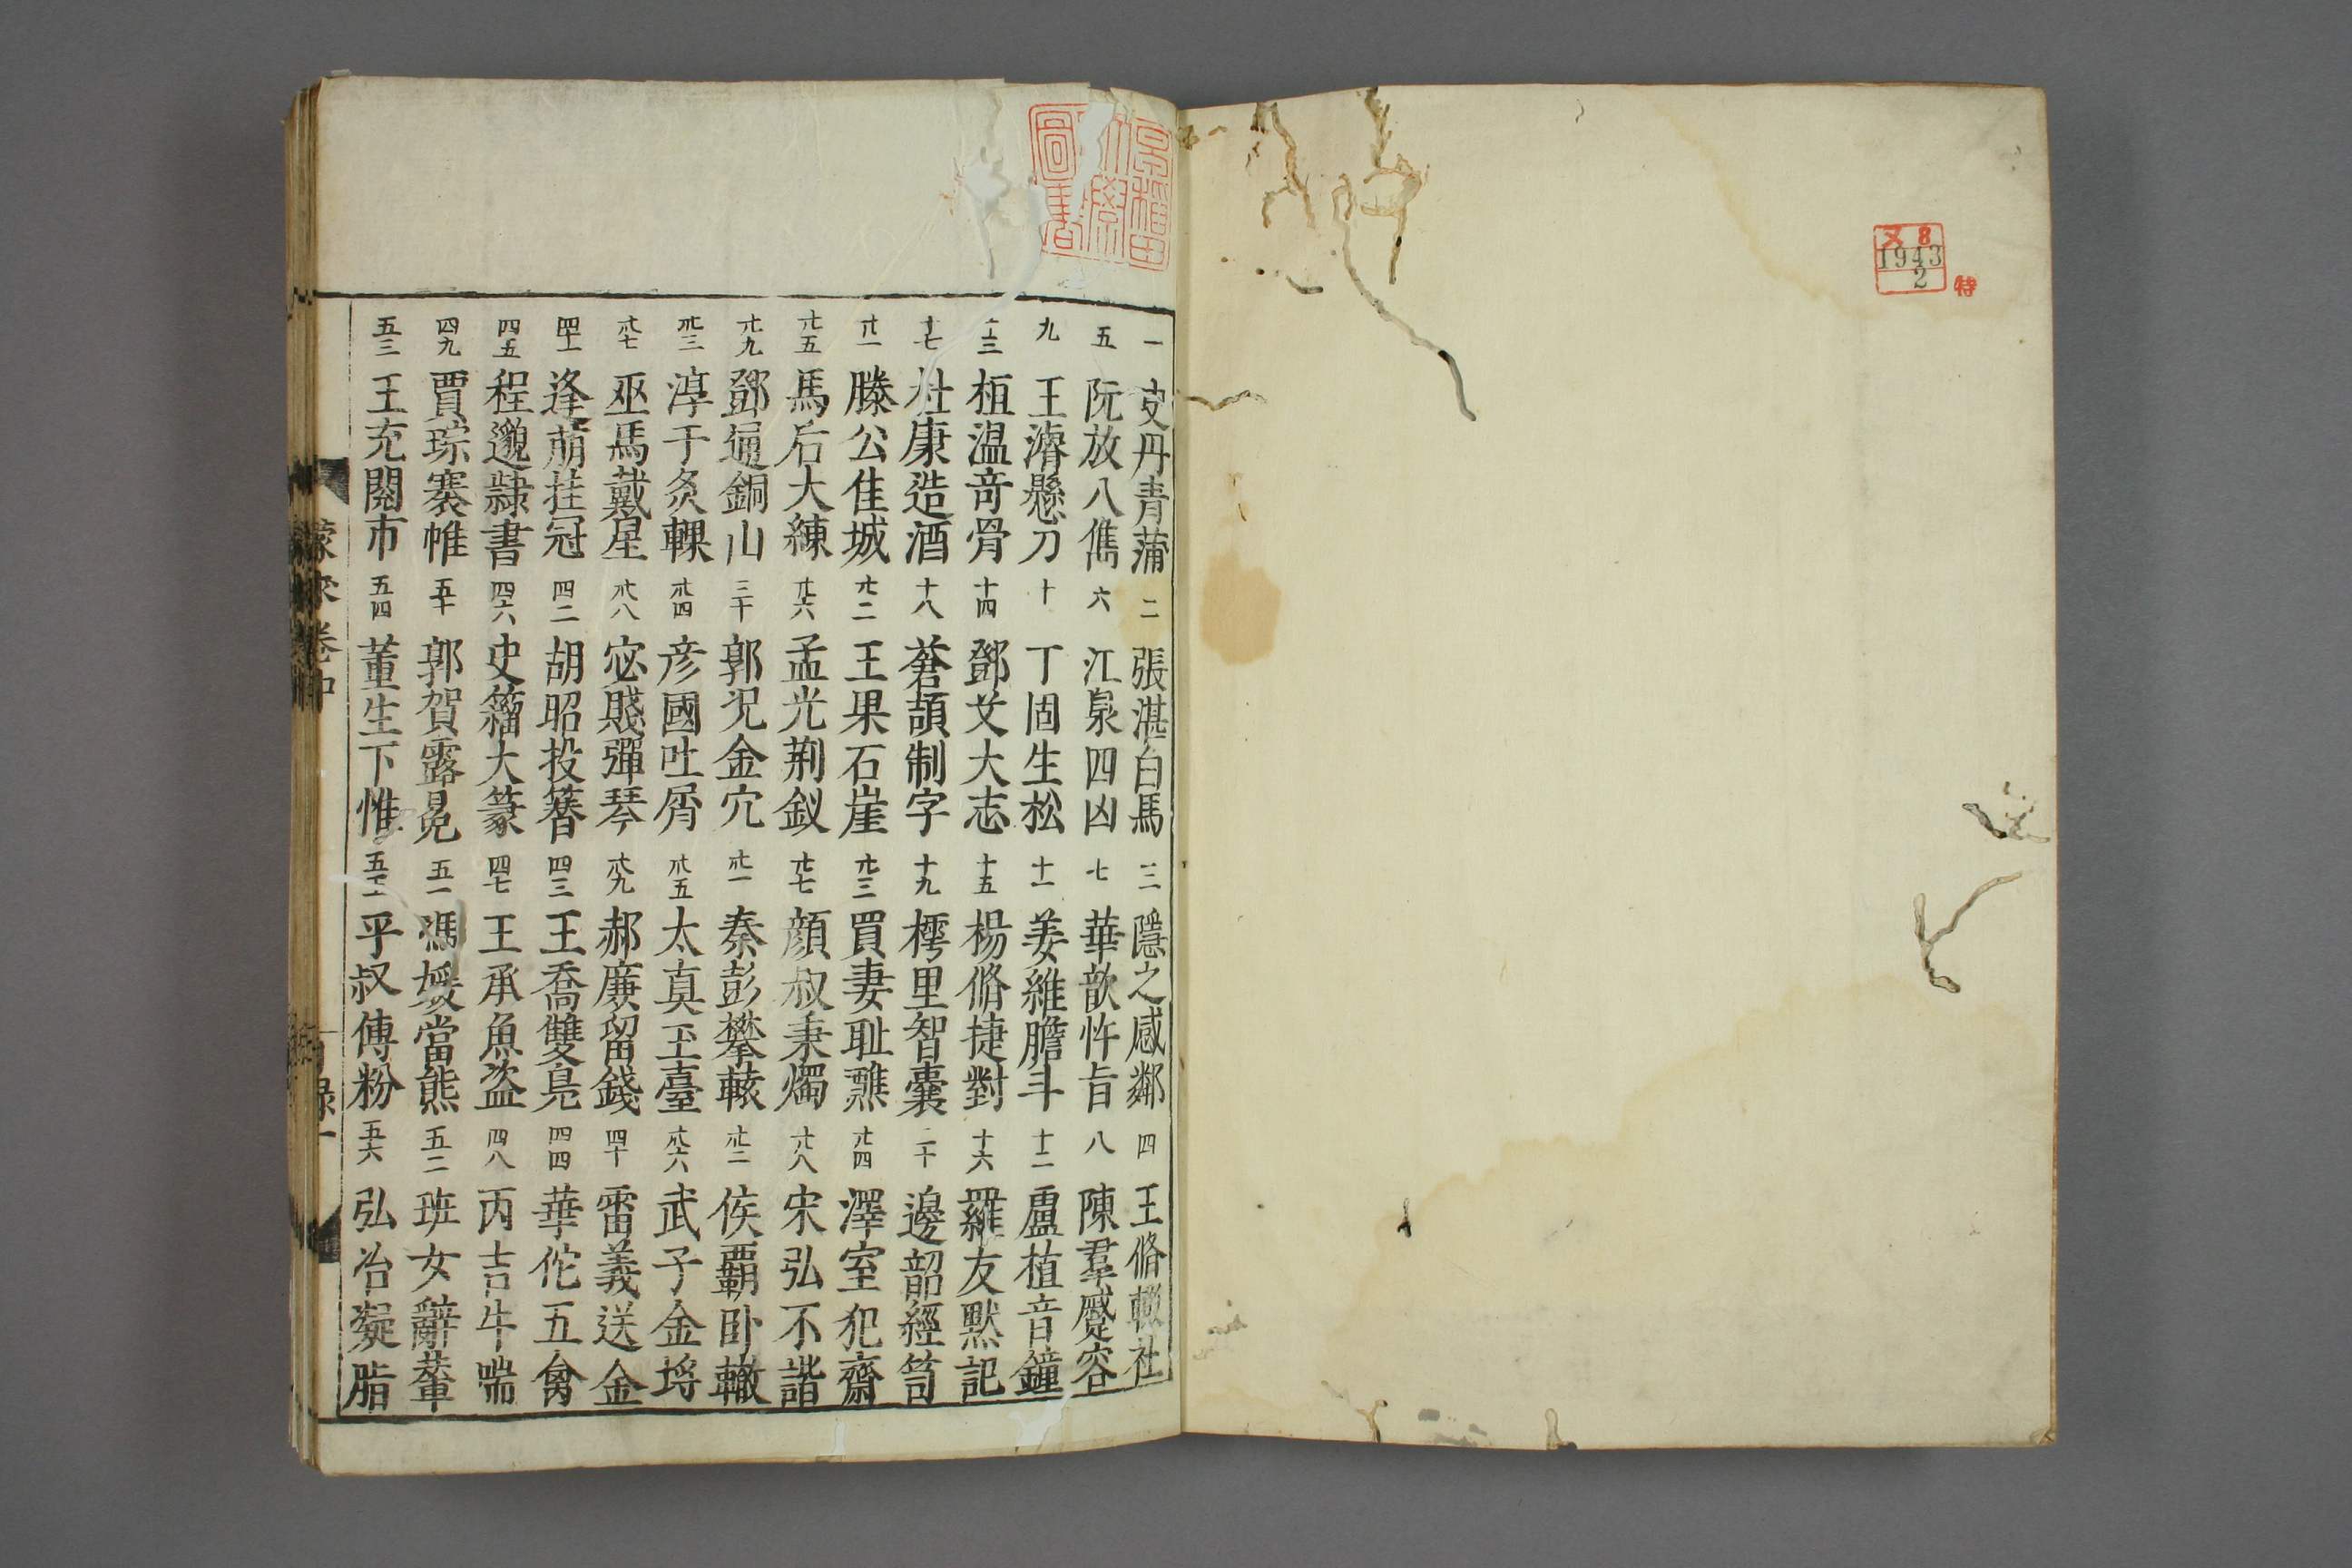 又 8
1943
2
特
一 史丹青蒲 二 張湛白馬 三 隱之感鄰 四 王脩輟社
五 阮放八儁 六 江泉四凶 七 華歆忤旨 八 陳羣蹙容
九 王濬懸刀 十 丁固生松 十一 姜維膽斗 十二 盧植音鐘
十三 桓温奇骨 十四 鄧艾大志 十五 楊脩捷對 十六 羅友默記
十七 杜康造酒 十八 蒼頡制字 十九 樗里智囊 二十 邊韶經笥
廿一 滕公佳城 廿二 王果石崖 廿三 買妻耻醮 廿四 澤室犯齋
廿五 馬后大練 廿六 孟光荆釵 廿七 顔叔秉燭 廿八 宋弘不諧
廿九 鄧通銅山 三十 郭况金穴 卅一 秦彭攀轅 卅二 侯覇卧轍
卅三 淳于炙輠 卅四 彦國吐屑 卅五 太真玉臺 卅六 武子金埒
卅七 巫馬戴星 卅八 宓賤彈琴 卅九 郝廉留錢 四十 雷義送金
四一 逢萠挂冠 四二 胡昭投簪 四三 王喬雙鳬 四四 華佗五禽
四五 程邈隷書 四六 史籀大篆 四七 王承魚盗 四八 丙吉牛喘
四九 賈琮褰帷 五十 郭賀露冕 五一 馮媛當熊 五二 班女辭輦
五三 王充閱市 五四 董生下惟 五五 平叔傅粉 五六 弘治凝脂
蒙求 卷中 目録 一